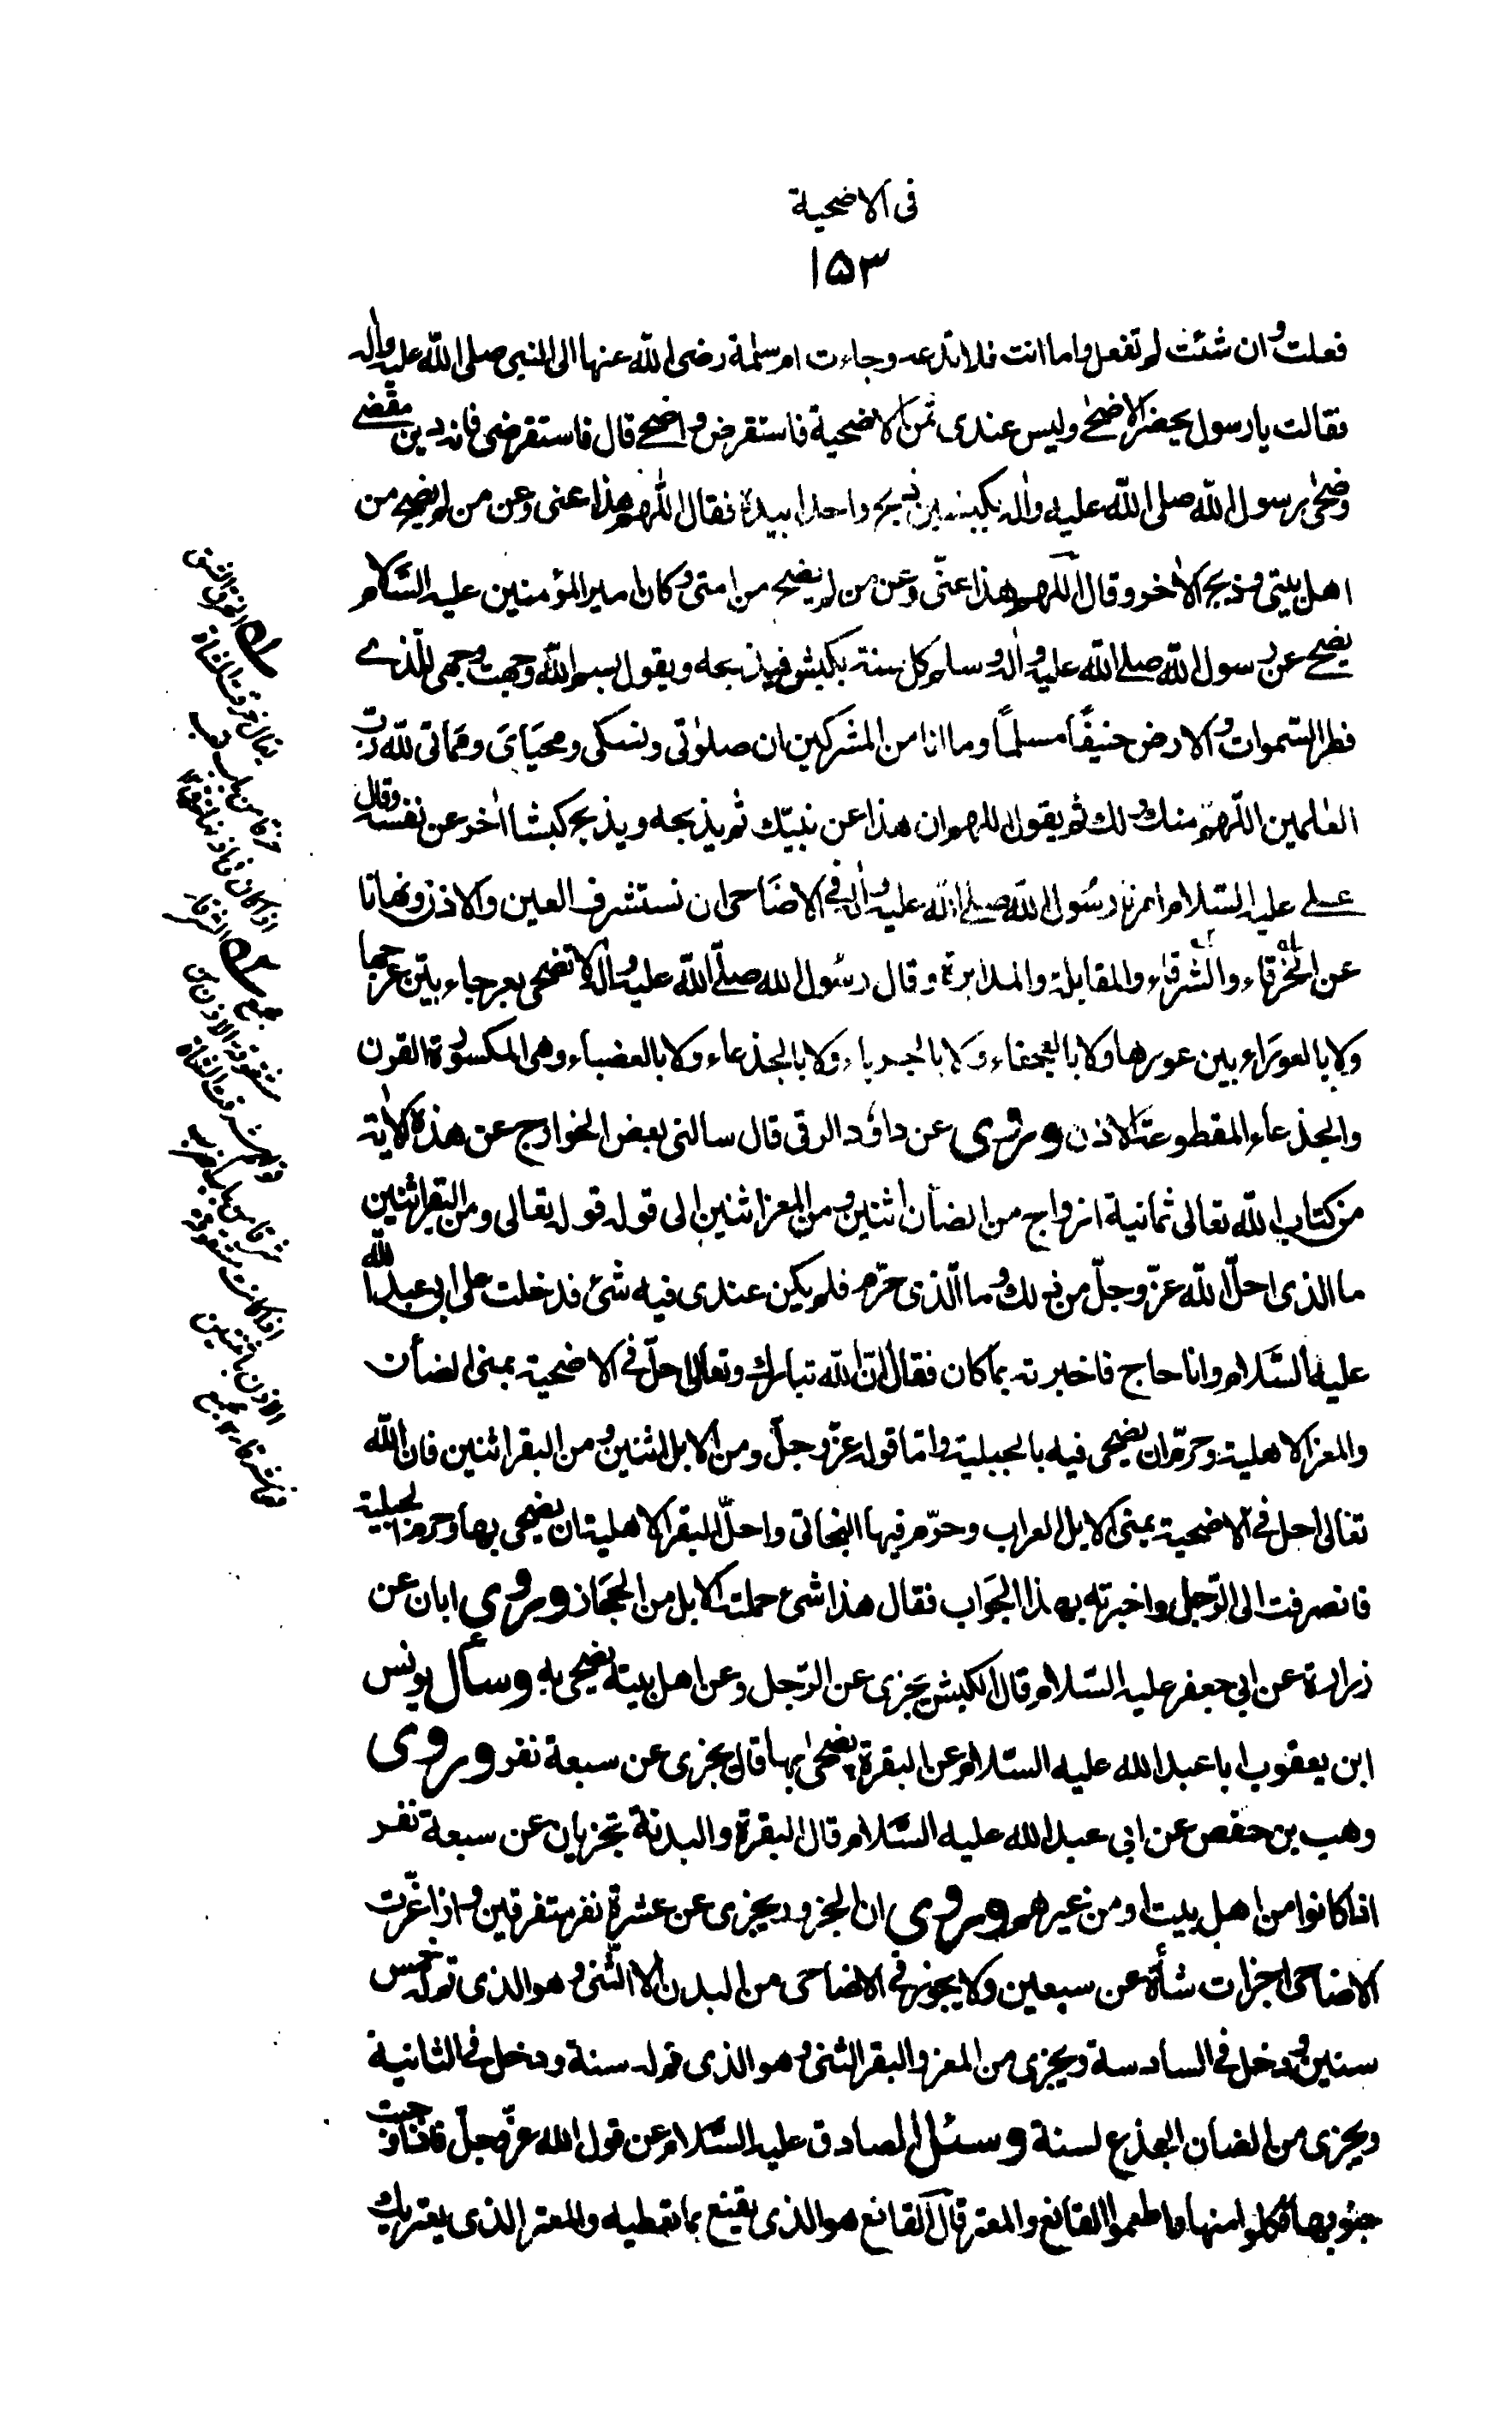 في الاضحية
١٥٣
فعلت وان شئت لم تفعل واما انت فلا تدعه وجاءت ام سلمة رضى الله عنها الى النبي صلى الله عليه واله
فقالت يا رسول يحضر الاضحى وليس عندى ثمن الاضحية فاستقرض واضحى قال فاستقرضى فانه دين مقضى
وضحى رسول الله صلى الله عليه واله بكبشين ذبح واحدا بيده فقال اللهم هذا عنى وعن من لم يضح من
اهل بيتي وذبح الاخر وقال اللهم هذا عنّى وعن من لم يضح من امتى وكان امير المؤمنين عليه السّلام
يضحى عن رسول الله صلى الله عليه واله وسلم كل سنة بكبش فيذبحه ويقول بسم الله وجهت وجهى للّذى
فطر السّموات والارض حنيفًا مسلمًا وما انا من المشركين ان صلوٰتى ونسكى ومحيَاىَ ومماتى للّه ربّ
العٰلمين اللّهمّ منك ولك ثم يقول اللهم ان هذا عن نبيّك ثم يذبحه ويذبح كبشا اٰخر عن نفسه وقال
على عليه السّلام امرنا رسُول الله صلى الله عليه واله في الاضَاحى ان نستشرف العين والاذن ونهانا
عن الخرقاء والشرقاء والمقابلة والمدابرة وقال رسُول الله صلّى اللّه عليه واله لا تضحى بعرجاء بيّن عرجها
ولا بالعورَاء بين عورها ولا بالعجفاء ولا بالجرباء ولا بالجذعاء ولا بالعضباء وهى المكسورة القرن
والجذعاء المقطوعة الاذن وروى عن داود الرقى قال سالنى بعض الخوارج عن هذه الاٰية
من كتاب الله تعالى ثمانية ازواج من الضأن اثنين ومن المعز اثنين الى قوله قوله تعالى ومن البقر اثنين
ما الذى احلّ اللّه عزّ وجلّ من ذلك وما الّذى حرّم فلم يكن عندى فيه شئ فدخلت على ابى عبد الله
عليه السَّلام وانا حاج فاخبرته بما كان فقال انّ اللّه تبارك وتعالى احلّ في الاضحية بمنى الضأن
والمعز الاهلية وحرّم ان يضحى فيه بالجبلية وامّا قوله عزّ وجلّ ومن الابل اثنين ومن البقر اثنين فان اللّه
تعالى احل في الاضحية بمنى الابل العراب وحرّم فيها البخاتى واحلّ البقر الاهلية ان يضحى بها وحرم الجبلية
فانصرفت الى الرّجل واخبرته بهذا الجوَاب فقال هذا شئ حملته الابل من الحجاز وروى ابان عن
زرارة عن ابي جعفر عليه السّلام قال الكبش يجزى عن الرّجل وعن اهل بيته يضحى به وسأل يونس
ابن يعقوب ابا عبد الله عليه السّلام عن البقرة يضحٰى بها قال يجزى عن سبعة نفر وروى
وهب بن حفص عن ابى عبد الله عليه السَّلام قال البقرة والبدنة تجزيان عن سبعة نفر
اذا كانوا من اهل بيت او من غيرهم وروى ان الجزور يجزى عن عشرة نفر متفرقين واذا عزّت
الاضاحى اجزات شأة عن سبعين ولا يجوز في الاضاحى من البدن الا الثّنى وهو الذى تم له خمس
سنين ودخل في السادسة ويجزى من المعز والبقر الثنى وهو الذى تم له سنة ودخل في الثانية
ويجزى من الضأن الجذع لسنة وسئل الصادق عليه السّلام عن قول الله عزّ وجلّ فاذا وجبت
جنوبها فكلوا منها واطعموا القانع والمعتر قال القانع هو الذى يقنع بما تعطيه والمعتر الذى يعتريك
يقال خرقت الشاة
خرقا من باب تعب
شرقا من باب تعب
اذا كانت مشقوقة
الاذن باثنين
فهى شرقاء مجمع